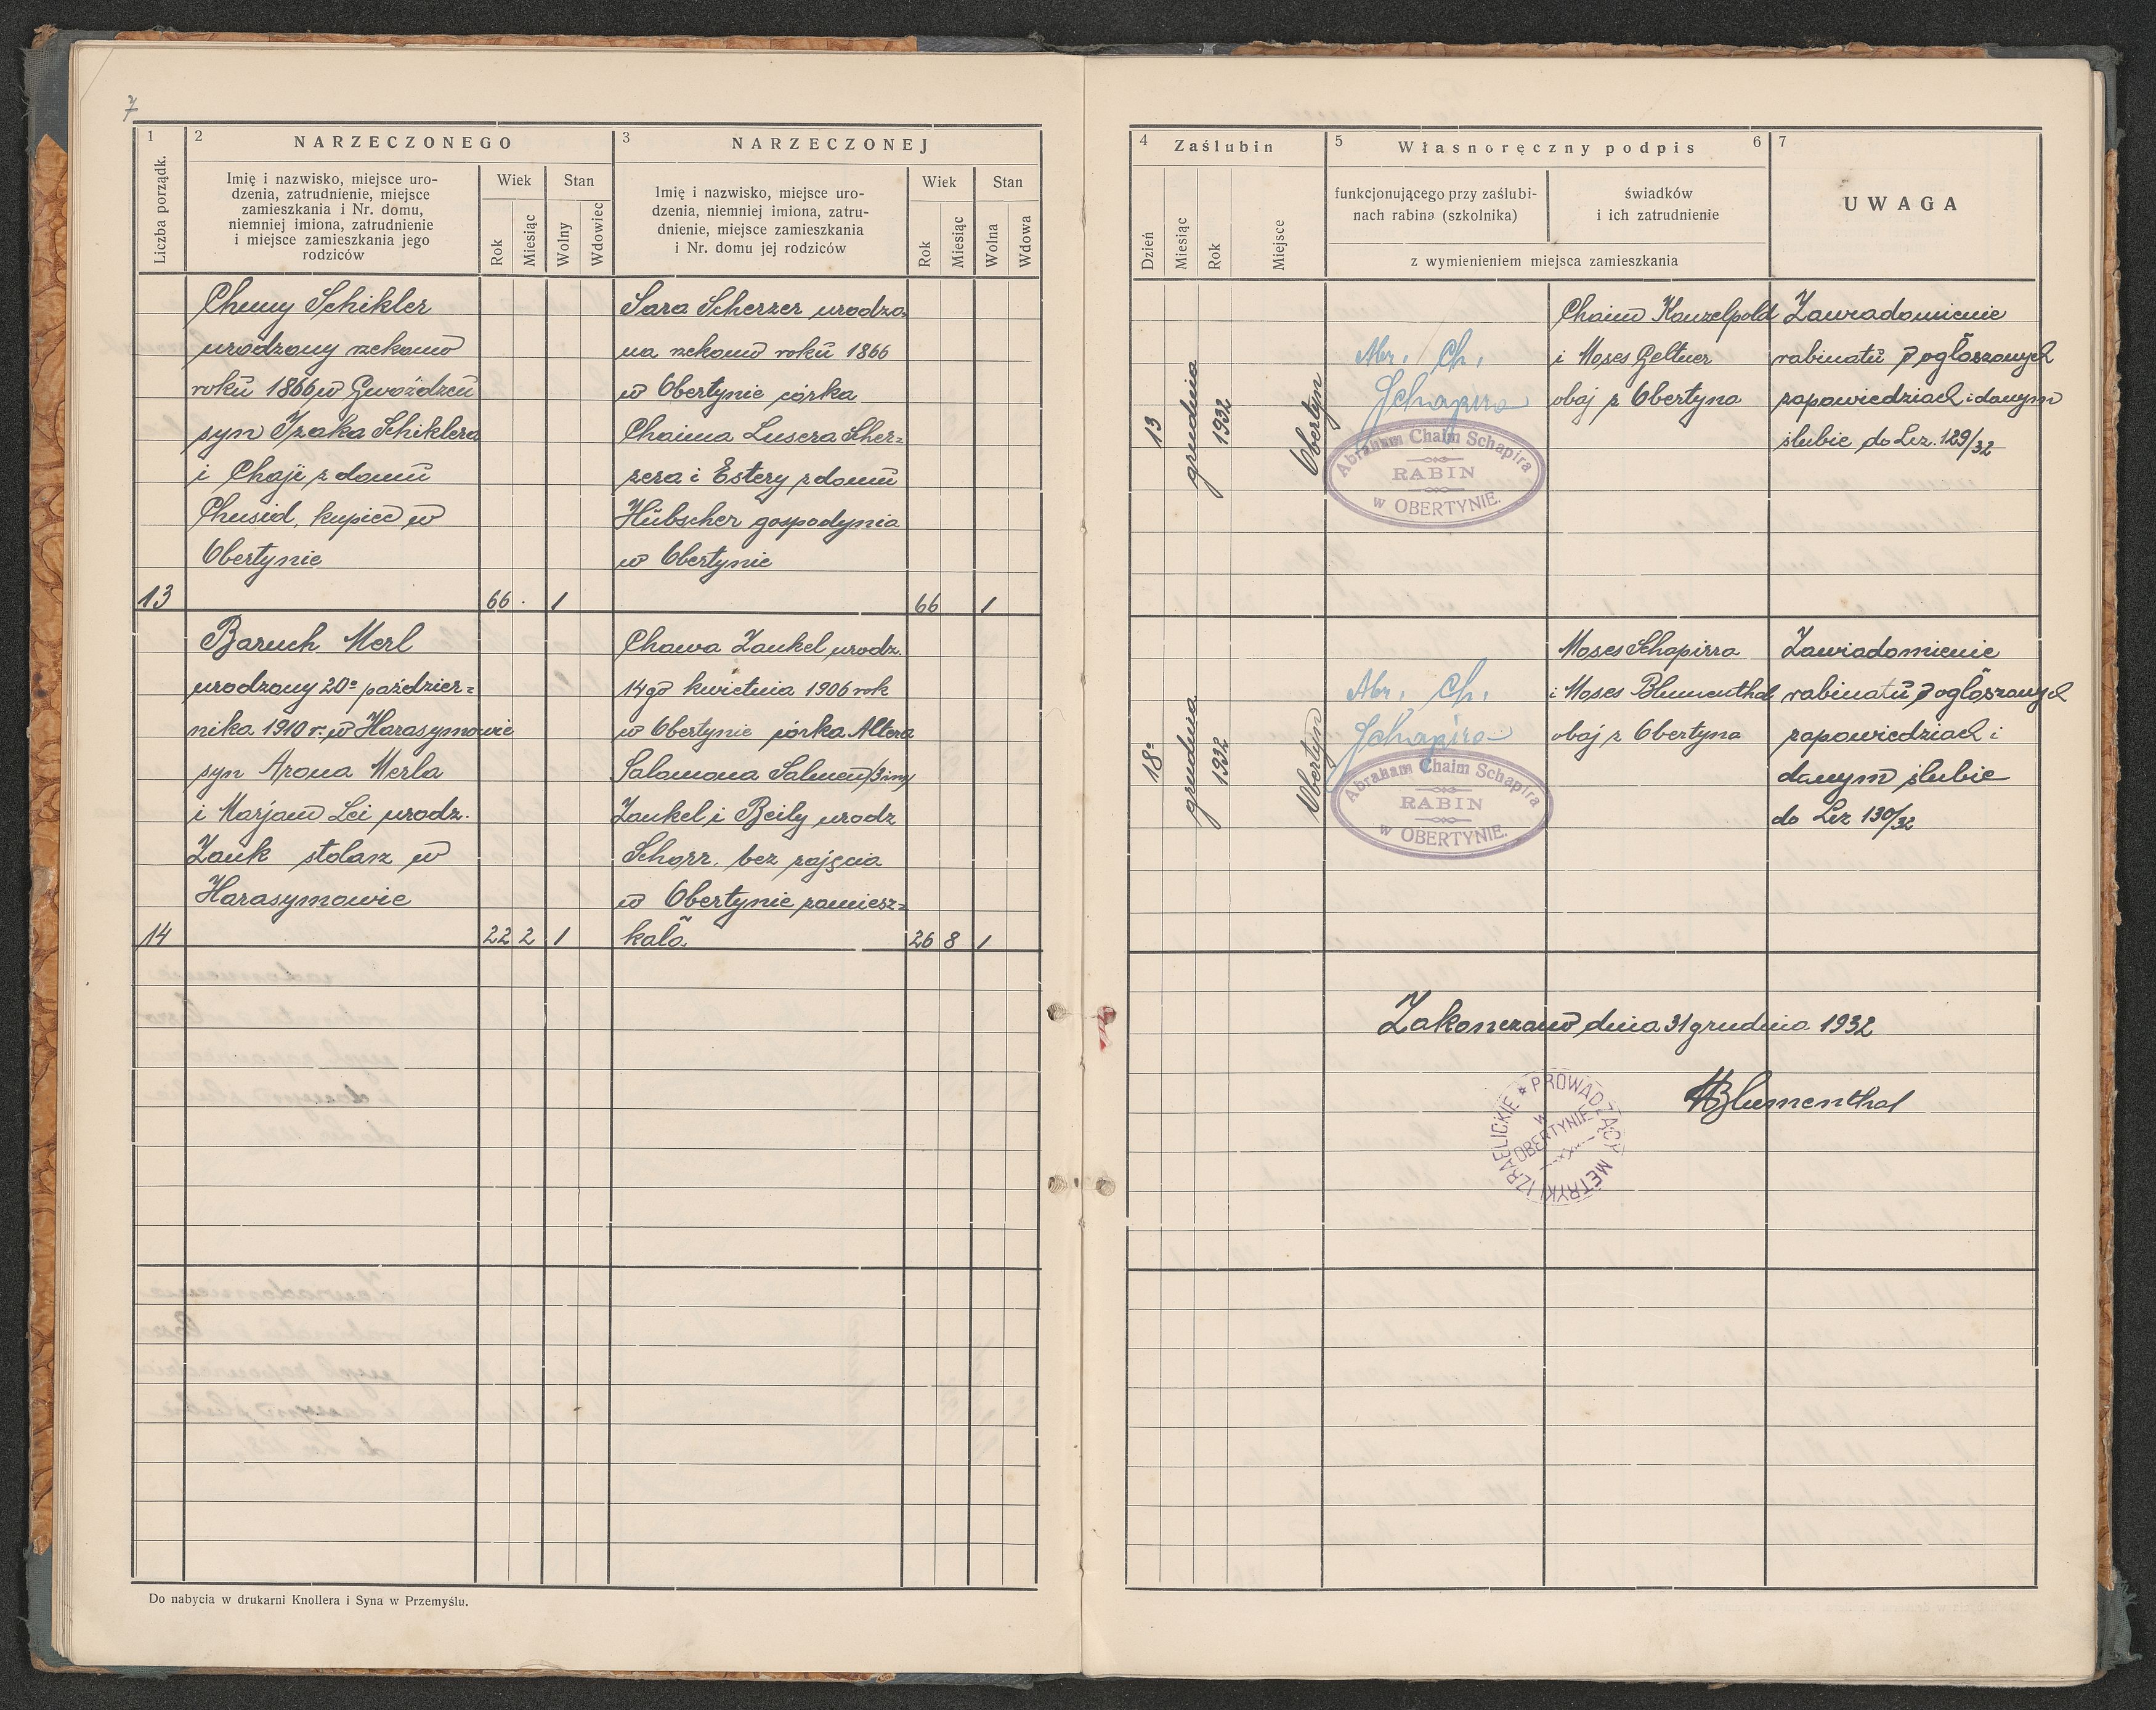 7
1
Liczba porządk.
2
NARZECZONEGO
Imię i nazwisko, miejsce uro-
dzenia, zatrudnienie, miejsce
zamieszkania i Nr. domu,
niemniej imiona, zatrudnienie
i miejsce zamieszkania jego
rodziców
Wiek
Rok
Miesiąc
Stan
Wolny
Wdowiec
3
NARZECZONEJ
Imię i nazwisko, miejsce uro-
dzenia, niemniej imiona, zatru-
dnienie, miejsce zamieszkania
i Nr. domu jej rodziców
Wiek
Rok
Miesiąc
Stan
Wolna
Wdowa
4
Zaślubin
Dzień
Miesiąc
Rok
Miejsce
5
Własnoręczny podpis
6
funkcjonującego przy zaślubi-
nach rabina (szkolnika)
świadków
i ich zatrudnienie
z wymienieniem miejsca zamieszkania
7
UWAGA
13
Schikler
urodzony rzekomo
roku 1866 w Gwoźdzcu
syn Izaka Schiklera
i Chaji z domu
Chusid, kupiec w
Obertynie
66
1
Sara Scherzer urodzo-
na rzekomo roku 1866
w Obertynie córka
Chaima Lusera Scher=
zera i Estery z domu
Hübscher gospodynia
w Obertynie
66
1
13
grudnia
1932
Obertyn
Abr. Ch.
Schapira
Abraham Chaim Schapira
RABIN
w OBERTYNIE.
Chaim
i Moses Geltner
obaj z Obertyna
Zawiadomienie
rabinatu o ogłoszonych
zapowiedziach i danym
ślubie do Lrz. 129/32
14
Baruch Merl
urodzony 20º paździer=
nika 1910 r. w Harasymowie
syn Arona Merla
i Marjam Lei urodz.
Zauk stolarz w
Harasymowie
22
2
1
Chawa Zankel urodz.
14go kwietnia 1906 rok
w Obertynie córka Altera
Salamona Salmen
Zankel i Beily urodz
Schorr, bez zajęcia
w Obertynie zamiesz=
kała
26
8
1
18º
grudnia
1932
Obertyn
Abr. Ch.
Schapira
Abraham Chaim Schapira
RABIN
w OBERTYNIE.
Moses Schapirra
i Moses Blumenthal
obaj z Obertyna
Zawiadomienie
rabinatu o ogłoszonych
zapowiedziach i
danym ślubie
do Lrz 130/32
Zakonczano dnia 31 grudnia 1932
Blumenthal
PROWADZĄCY METRYKI IZRAELICKIE
w
OBERTYNIE
Do nabycia w drukarni Knollera i Syna w Przemyślu.